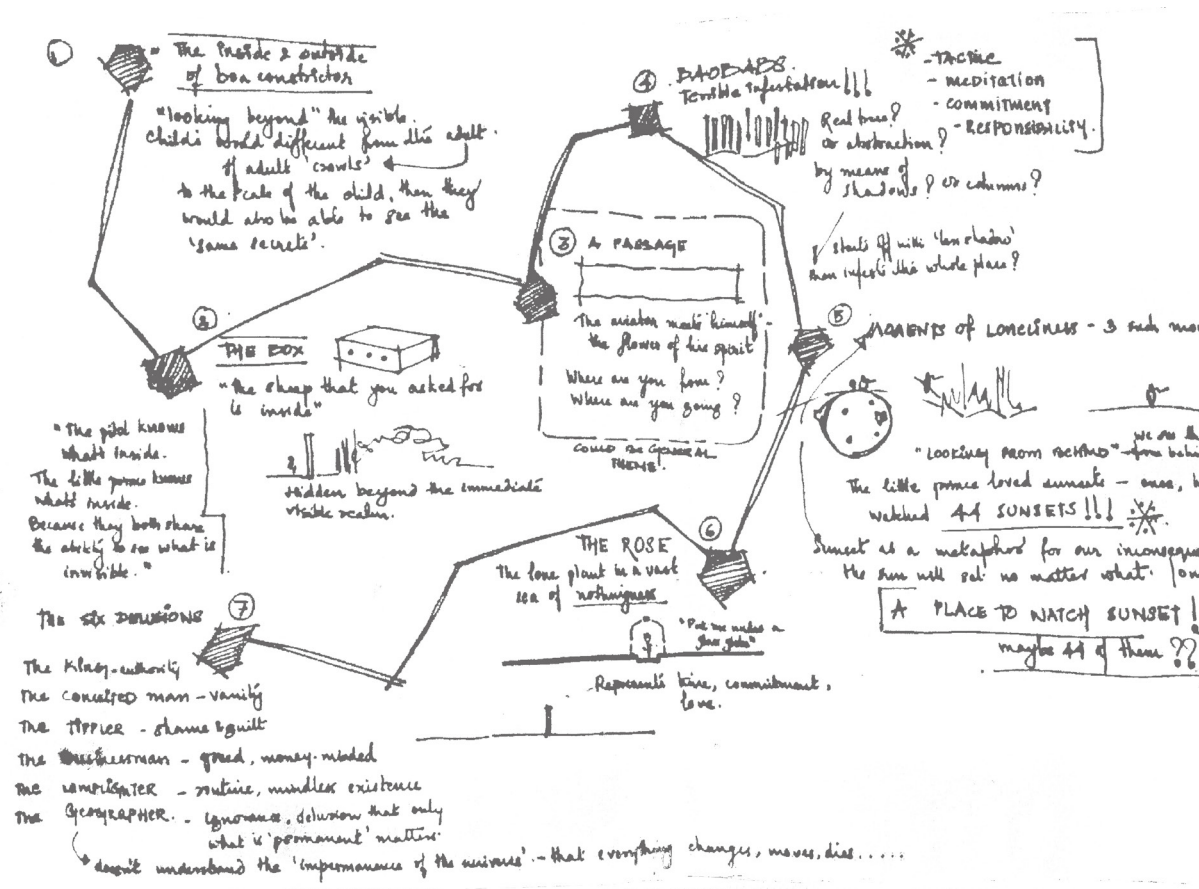 1
"The inside & outside
of boa constrictor
"looking beyond" the visible.
Child's world different from the adult.
If adult 'crawls'
to the scale of the child, then they
would also be able to see the
'same secrets'.
2
THE BOX
"the sheep that you asked for
is inside"
"The pilot knows
what's inside.
The little prince knows
what's inside.
Because they both share
the ability to see what is
invisible."
Hidden beyond the immediate
visible realm.
3
A PASSAGE
The aviator meets 'himself' -
the flower of his spirit
Where are you from?
Where are you going?
COULD BE GENERAL
THEME.
4
BAOBABS.
Terrible infestation!!!
Real trees?
or abstraction?
by means of
shadows? or columns?
starts off with
then infests the whole place?
- TACTILE
- MEDITATION
- COMMITMENT
- RESPONSIBILITY.
5
MOMENTS OF LONELINESS - 3 such
"LOOKING FROM BEHIND" - from
we are
The little prince loved sunsets - once,
watched 44 SUNSETS!!!
Sunset as a metaphor for our
the sun will set no matter what.
A PLACE TO WATCH SUNSET!
maybe 44 of them??
6
THE ROSE
The lone plant in a vast
sea of nothingness
"Put me under a
glass globe"
Represents time, commitment,
love.
7
THE SIX DELUSIONS
The King - authority
The CONCEITED MAN - vanity
The TIPPLER - shame & guilt
The Businessman - greed, money-minded
The LAMPLIGHTER - routine, mindless existence
The GEOGRAPHER. - ignorance, delusion that only
what is 'permanent' matters.
doesn't understand the 'impermanence of the universe' - that everything changes, moves, dies.....